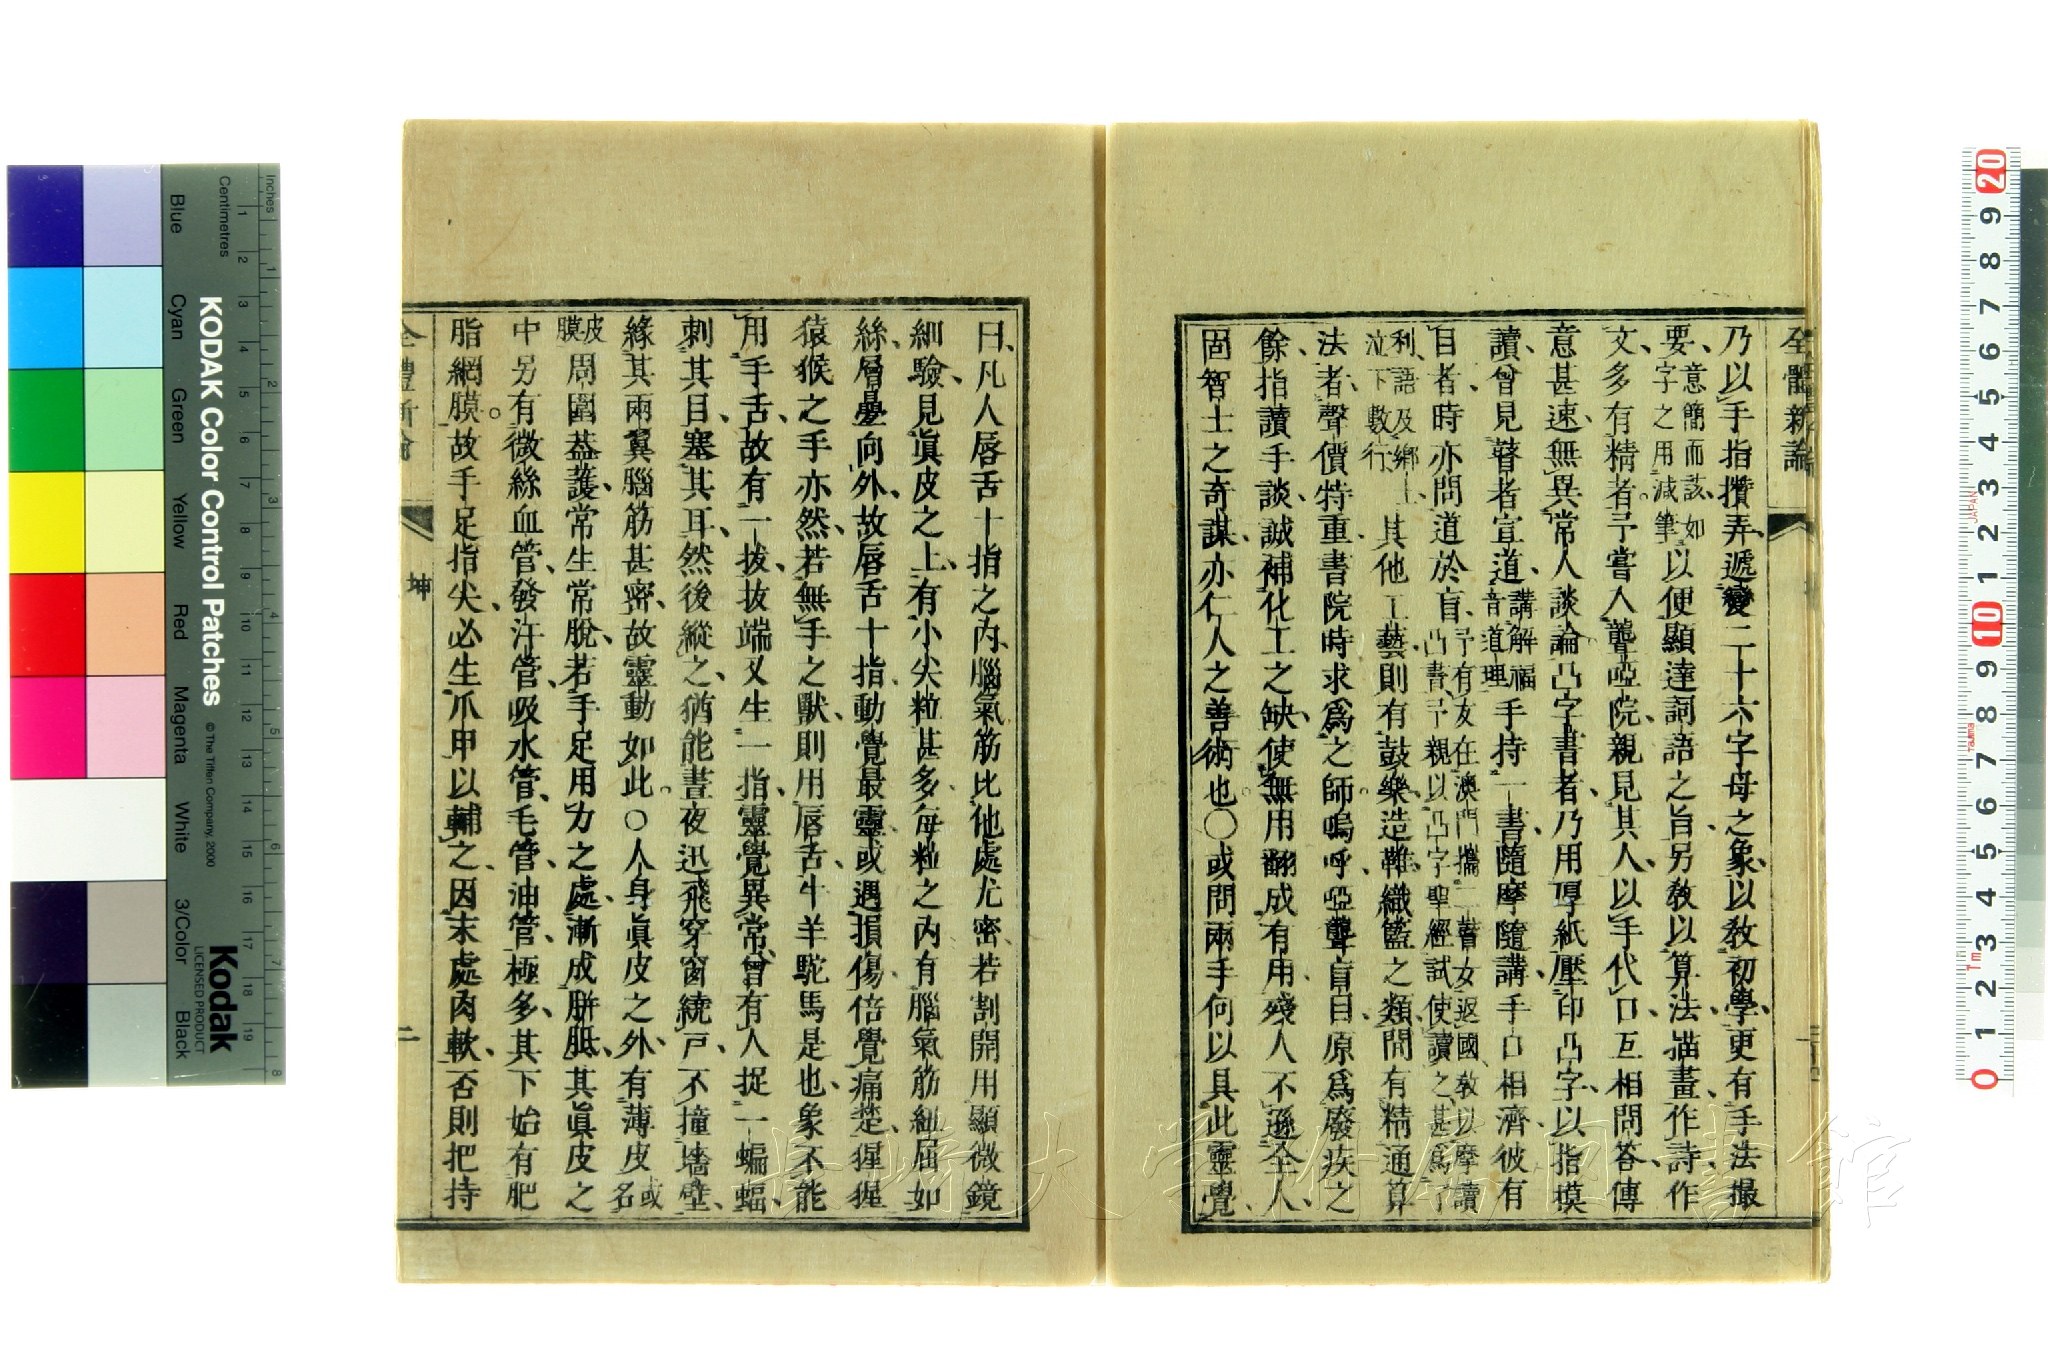 全體新論
乃以手指攢弄遞變二十六字母之象以敎初學更有手法撮
要意簡而該如字之用減筆以便顯達詞語之旨另敎以算法描畫作詩作
文多有精者予嘗入聾啞院親見其人以手代口互相問答傳
意甚速無異常人談論凸字書者乃用厚紙壓印凸字以指摸
讀曾見瞽者宣道講解福音道理手持一書隨摩隨講手口相濟彼有
目者時亦問道於盲予有友在澳門攜二瞽女返國敎以摩讀凸書予親以凸字聖經試使讀之甚爲了
利語及鄉土泣下數行其他工藝則有鼓樂造鞋織籃之類間有精通算
法者聲價特重書院時求爲之師嗚呼啞聾盲目原爲廢疾之
餘指讀手談誠補化工之缺使無用翻成有用殘人不遜全人
固智士之奇謀亦仁人之善術也○或問兩手何以具此靈覺
曰凡人唇舌十指之內腦氣筋比他處尤密若割開用顯微鏡
細驗見眞皮之上有小尖粒甚多每粒之內有腦氣筋紐屈如
絲層疊向外故唇舌十指動覺最靈或遇損傷倍覺痛楚猩猩
猿猴之手亦然若無手之獸則用唇舌牛羊駝馬是也象不能
用手舌故有一拔拔端又生一指靈覺異常曾有人捉一蝙蝠
刺其目塞其耳然後縱之猶能晝夜迅飛穿窗繞戶不撞墻壁
緣其兩翼腦筋甚密故靈動如此○人身眞皮之外有薄皮或名
皮膜周圍葢護常生常脫若手足用力之處漸成胼胝其眞皮之
中另有微絲血管發汗管吸水管毛管油管極多其下始有肥
脂網膜故手足指尖必生爪甲以輔之因末處肉軟否則把持
全體新論
坤
二
長崎大学附属図書館
KODAK Color Control Patches
© The Tiffen Company, 2000
Kodak
LICENSED PRODUCT
Inches
Centimetres
Blue
Cyan
Green
Yellow
Red
Magenta
White
3/Color
Black
JAPAN